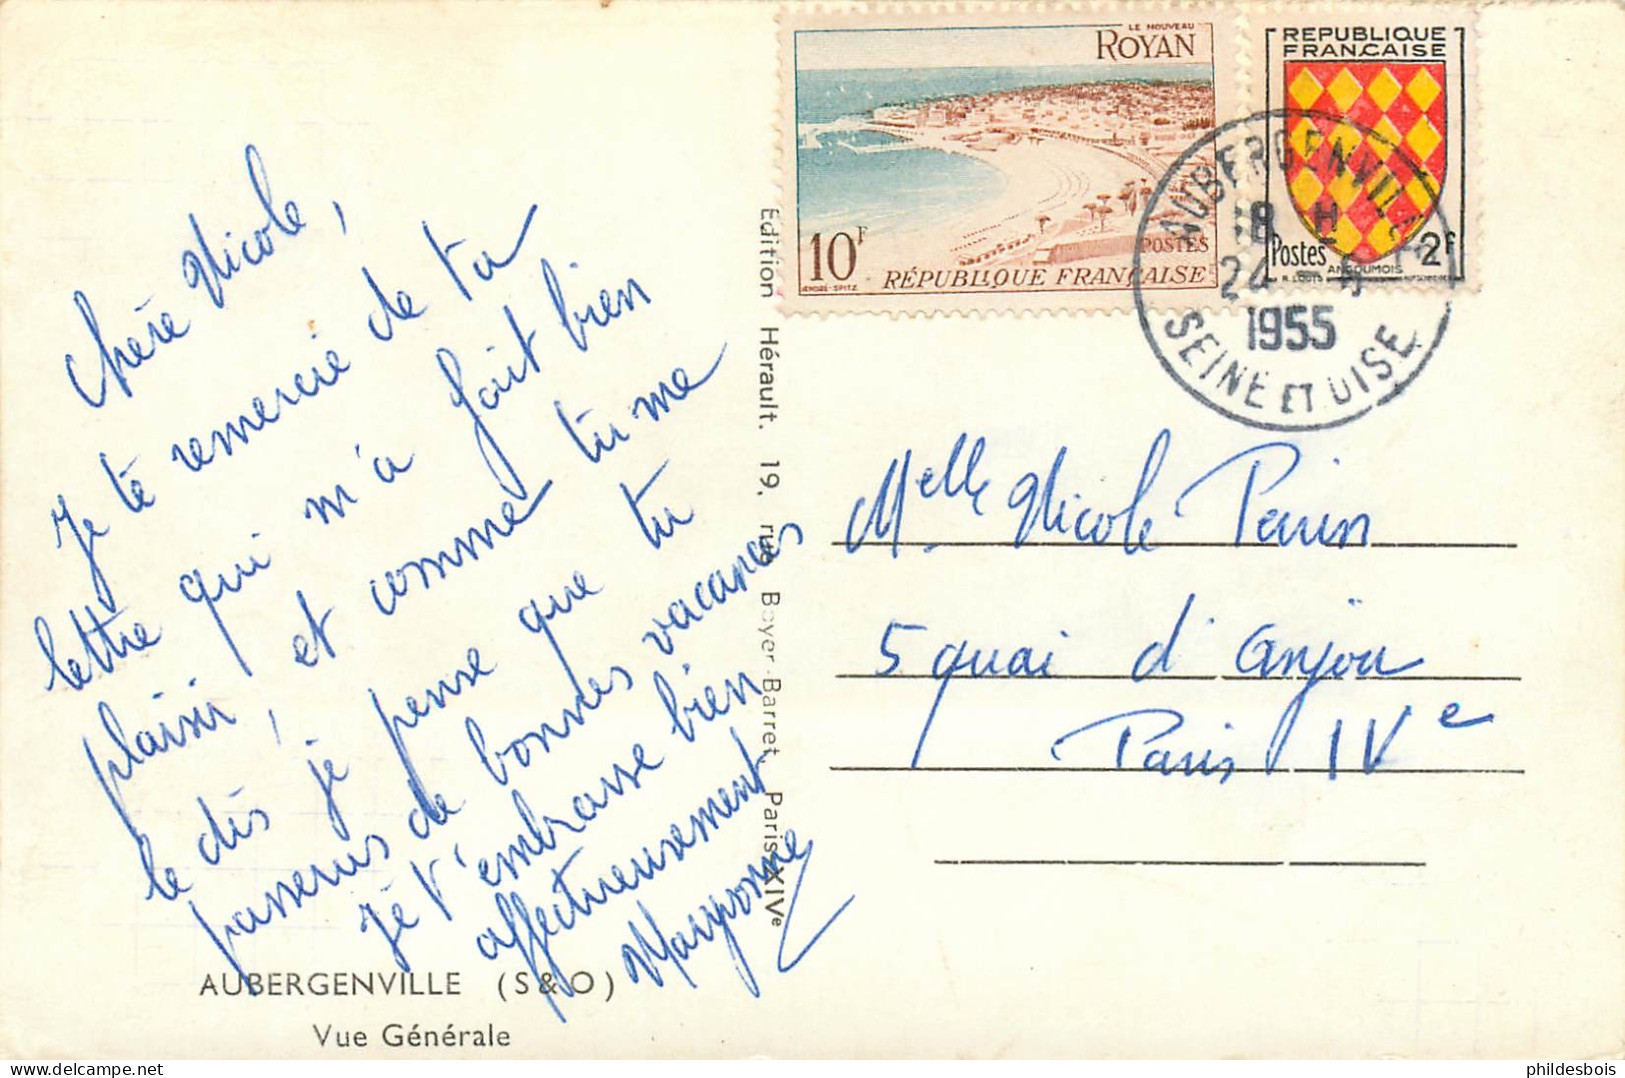 Chère Nicole,
Je te remercie de ta
lettre qui m'a fait bien
plaisir, et comme tu me
le dis je pense que tu
passeras de bonnes vacances
je t'embrasse bien
affectueusement
Maryvonne
AUBERGENVILLE (S & O)
Vue Générale
Edition Hérault. 19, rue Boyer-Barret Paris XIVe
LE NOUVEAU
ROYAN
10F
POSTES
RÉPUBLIQUE FRANÇAISE
ANDRÉ-SPITZ
REPUBLIQUE
FRANCAISE
Postes 2f
ANGOUMOIS
R. LOUIS
AUBERGENVILLE
18 H
24
1955
SEINE ET OISE
Melle Nicole Perrin
5 quai d'Anjou
Paris IVe
phildesbois